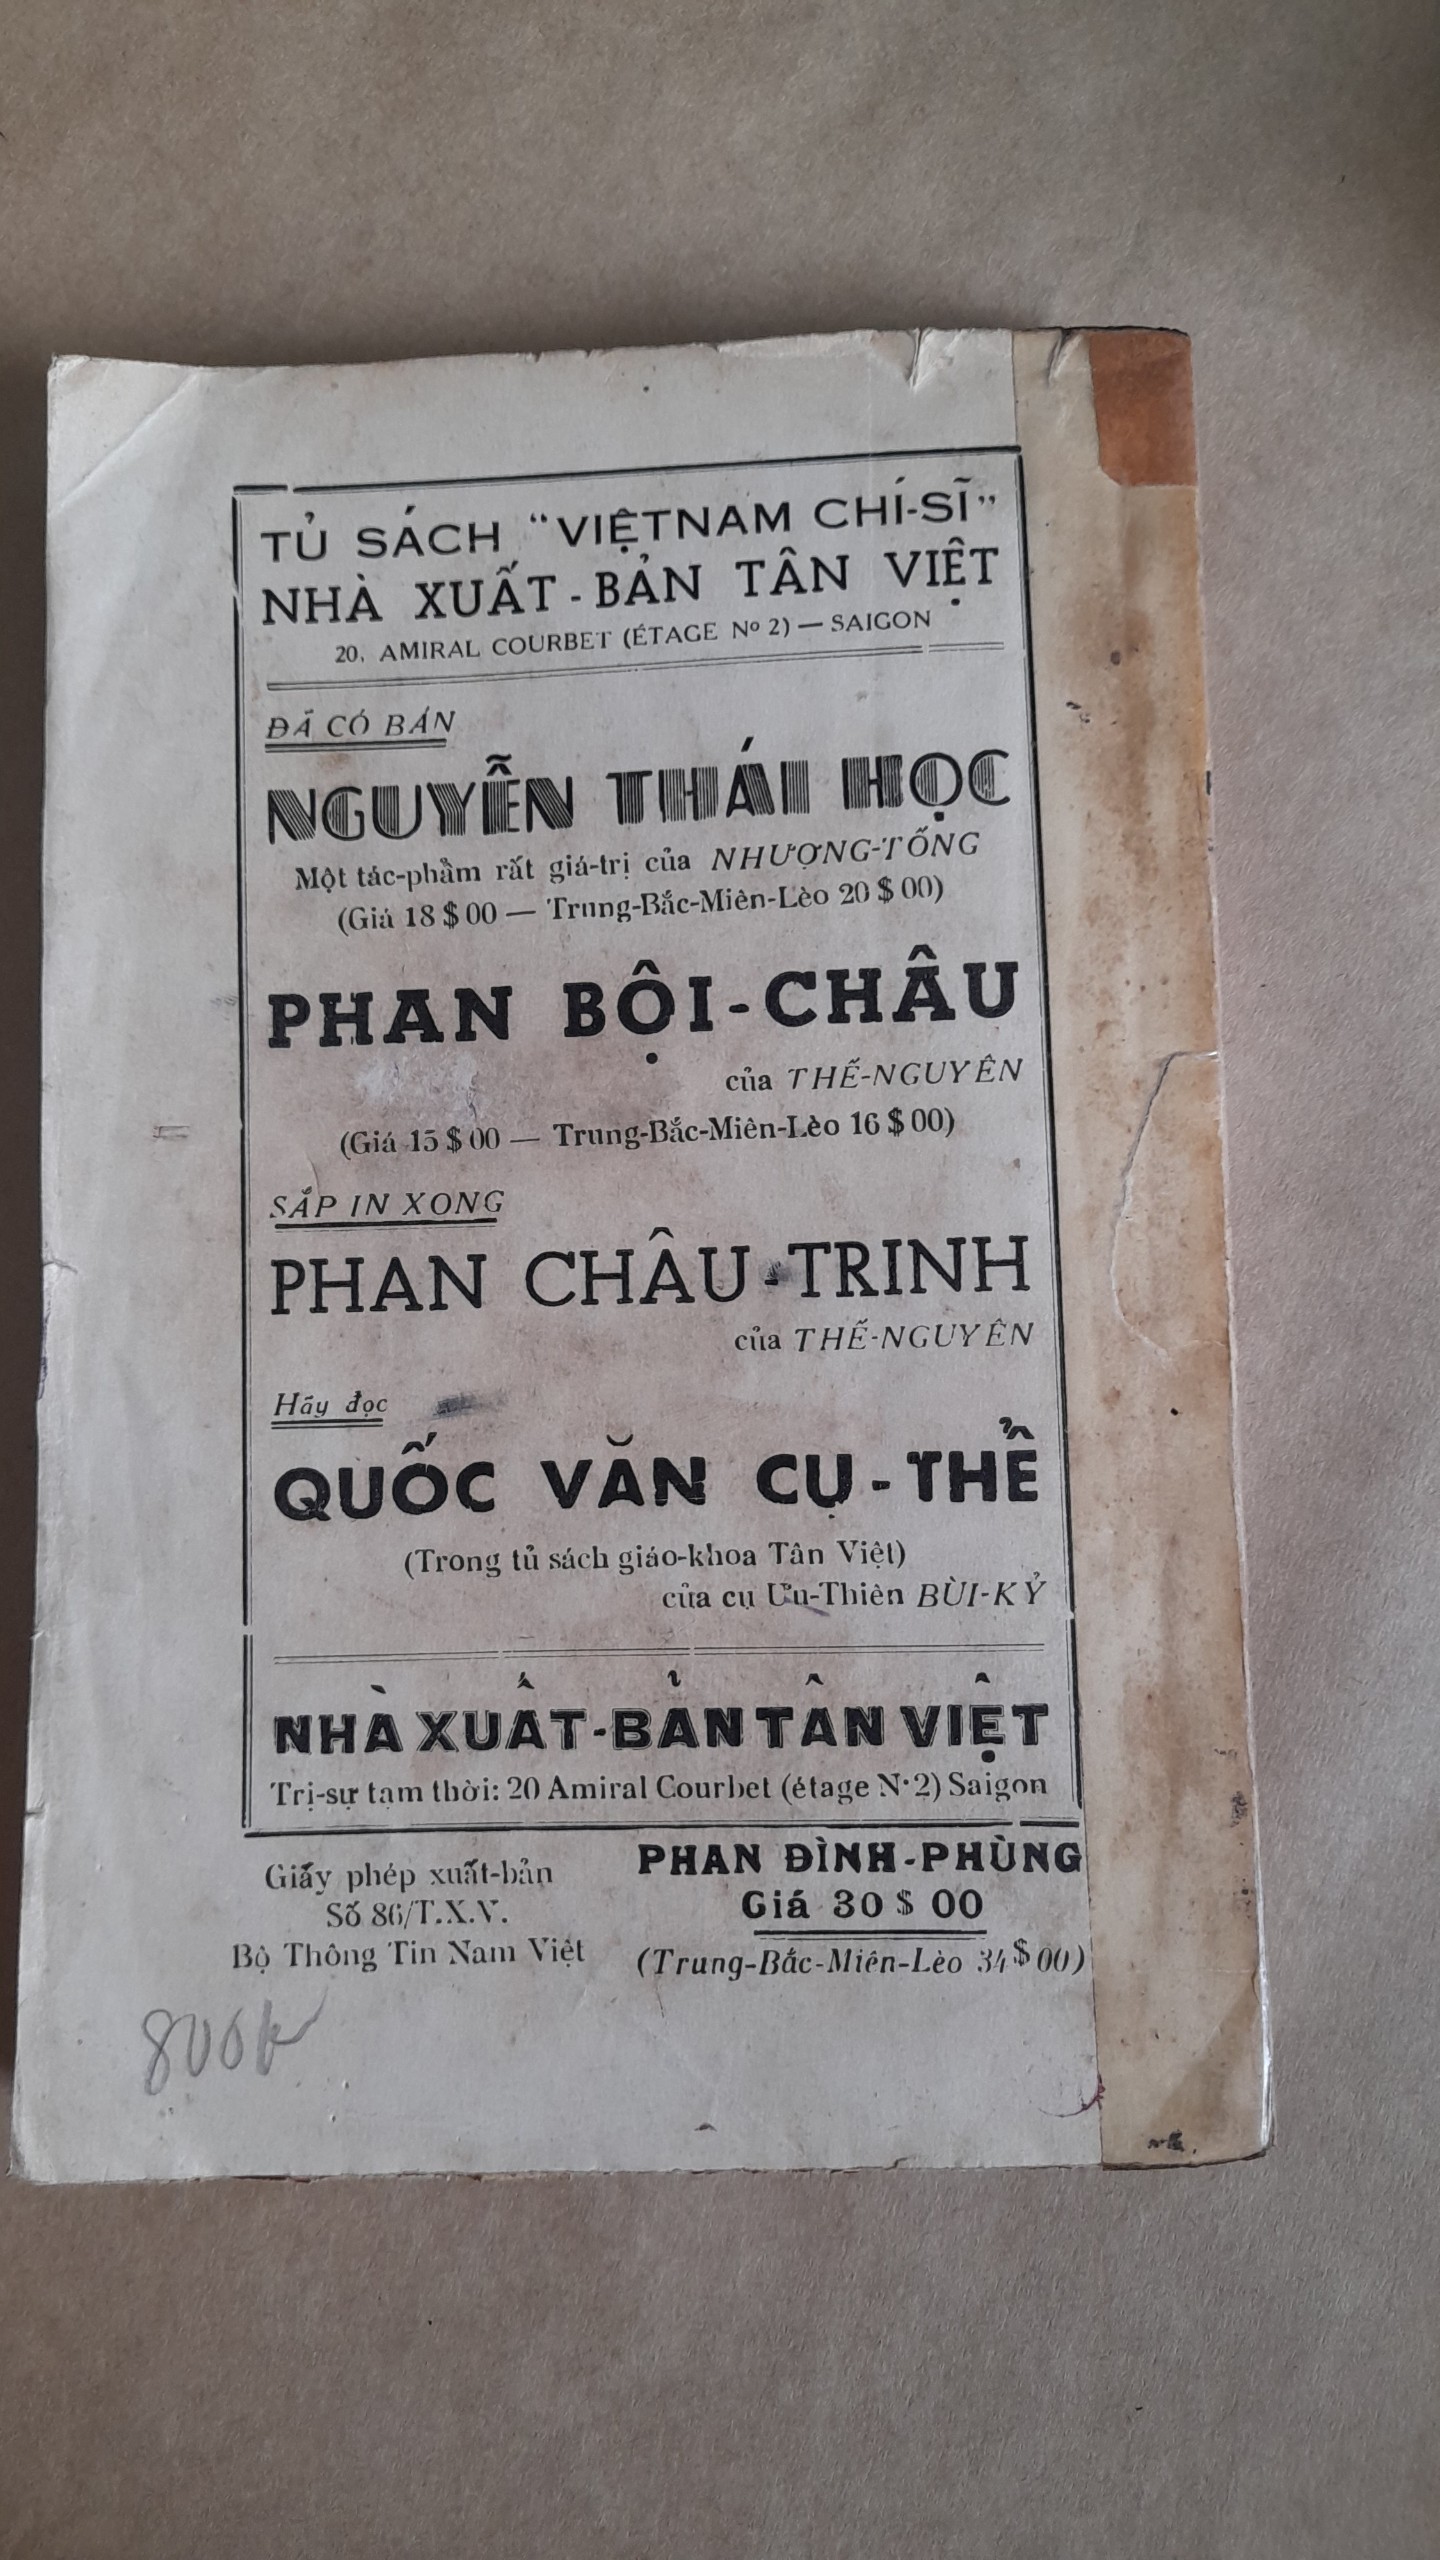 TỦ SÁCH “VIỆTNAM CHÍ-SĨ”
NHÀ XUẤT-BẢN TÂN VIỆT
20, AMIRAL COURBET (ÉTAGE Nº 2) — SAIGON
ĐÃ CÓ BÁN
NGUYỄN THÁI HỌC
Một tác-phẩm rất giá-trị của NHƯỢNG-TỐNG
(Giá 18 $ 00 — Trung-Bắc-Miên-Lèo 20 $ 00)
PHAN BỘI-CHÂU
của THẾ-NGUYÊN
(Giá 15 $ 00 — Trung-Bắc-Miên-Lèo 16 $ 00)
SẮP IN XONG
PHAN CHÂU-TRINH
của THẾ-NGUYÊN
Hãy đọc
QUỐC VĂN CỤ-THỂ
(Trong tủ sách giáo-khoa Tân Việt)
của cụ Ưu-Thiên BÙI-KỶ
NHÀ XUẤT-BẢN TÂN VIỆT
Trị-sự tạm thời: 20 Amiral Courbet (étage N·2) Saigon
Giấy phép xuất-bản
Số 86/T.X.V.
Bộ Thông Tin Nam Việt
PHAN ĐÌNH-PHÙNG
Giá 30 $ 00
(Trung-Bắc-Miên-Lèo 34 $ 00)
800k